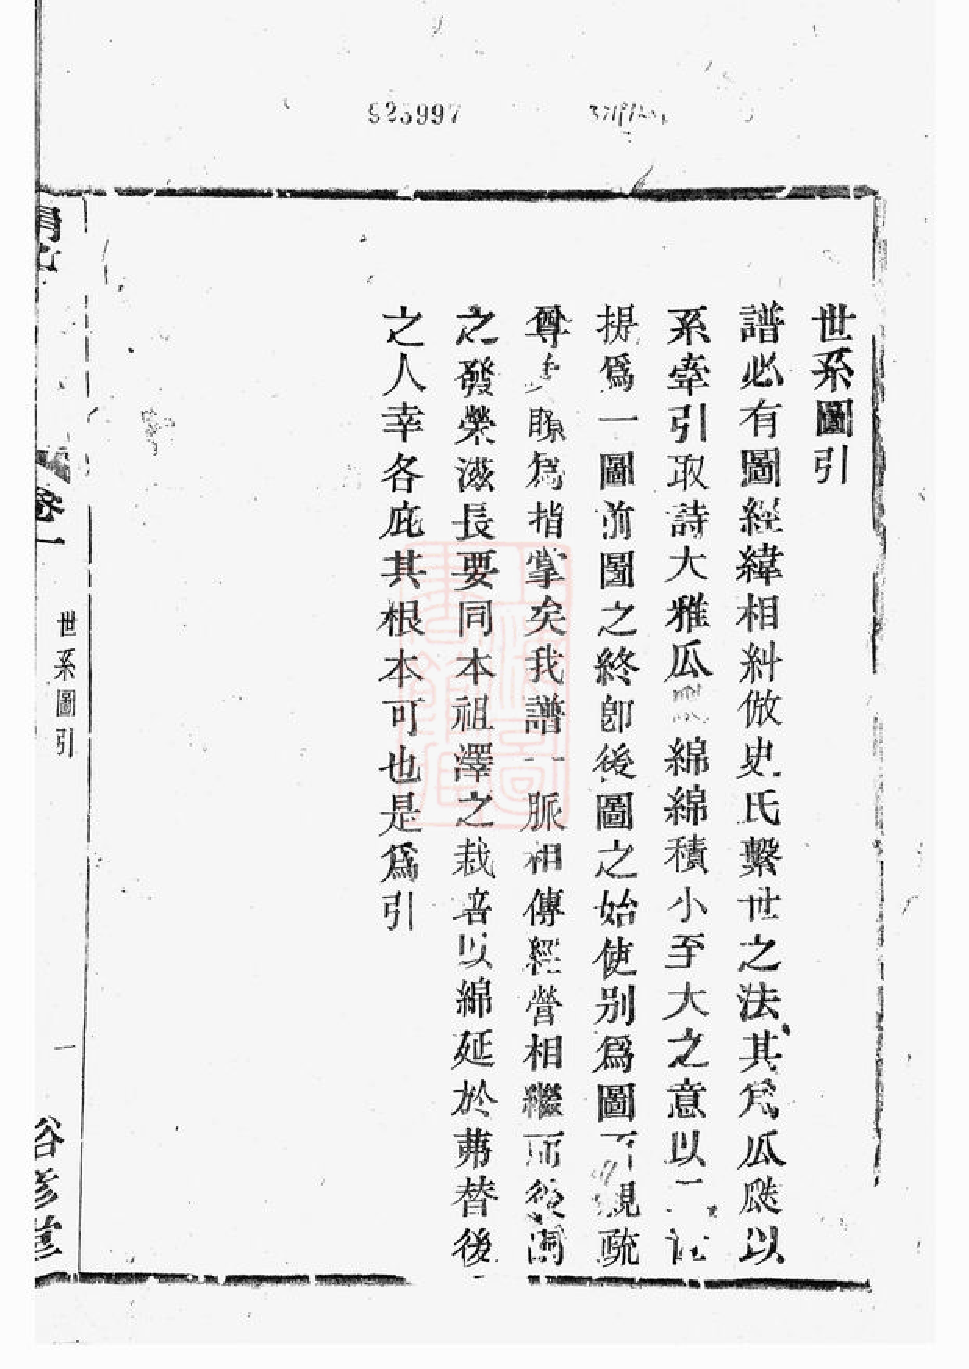 925997
世系圖引
譜必有圖經緯相糾倣史氏繫世之法其爲瓜瓞以
系牽引取詩大雅瓜綿綿積小至大之意以
提爲一圖前圖之終卽後圖之始使別爲圖親疏
尊爲指掌矣我譜一脈相傳經營相繼而後
之發榮滋長要同本祖澤之栽培以綿延於弗替後
之人幸各庇其根本可也是爲引
卷一
世系圖引
一
裕彦堂
上海圖書館藏